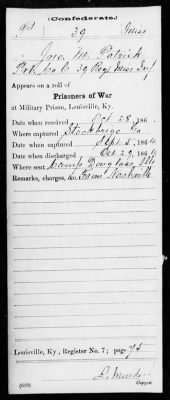 (Confederate.)
P 39 Miss
Jas. M. Patrick
Pvt, Co C, 39 Reg't Miss Inf
Appears on a roll of
Prisoners of War
at Military Prison, Louisville, Ky.
Date when received Oct 28, 186
Where captured Stockbrige Ga
Date when captured Sept 5, 1864
Date when discharged Oct 29, 1864
Where sent Camp Douglas, Ills
Remarks, charges, &c. From Nashville
Louisville, Ky., Register No. 7; page 73
(639)
Copyist.